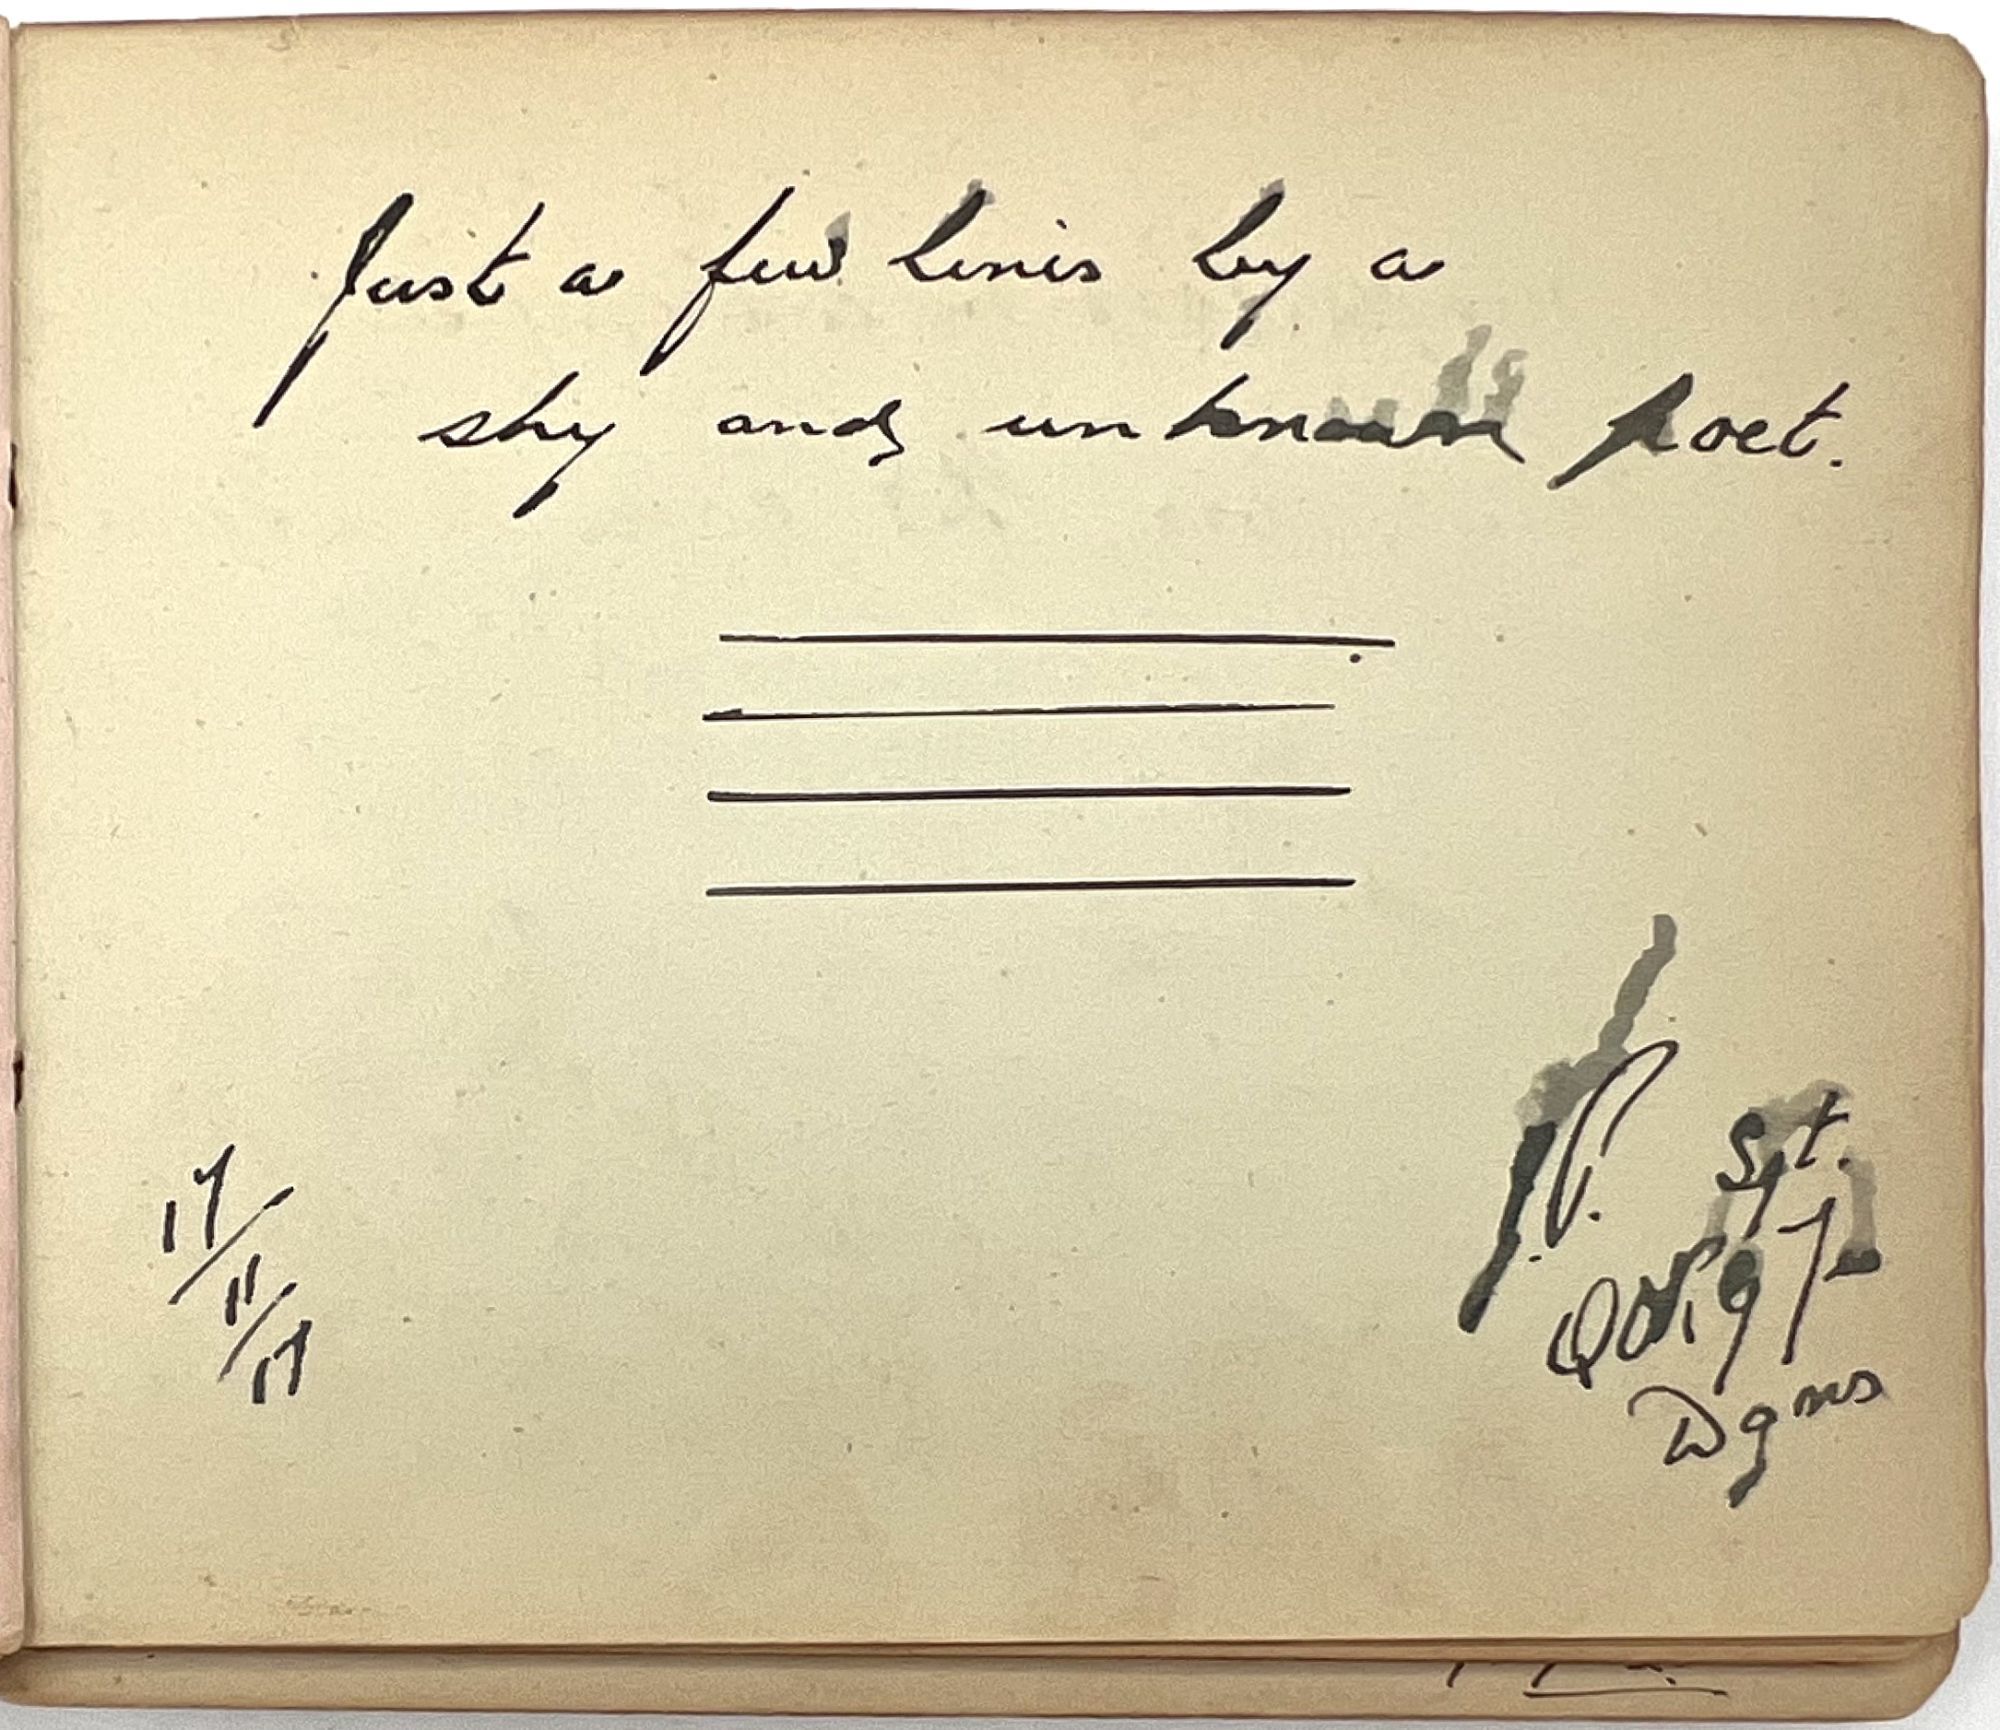 Just a few lines by a
shy and unknown poet.
17/11/17
J. P.
Sgt.
Dgns